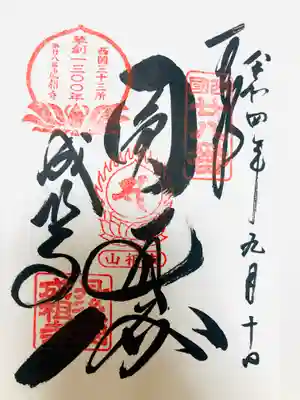 令和四年九月十日
奉拝
西國廿八番
圓
成相寺
西国三十三所
草創一三〇〇年
第廿八番成相寺
成相山
成相寺